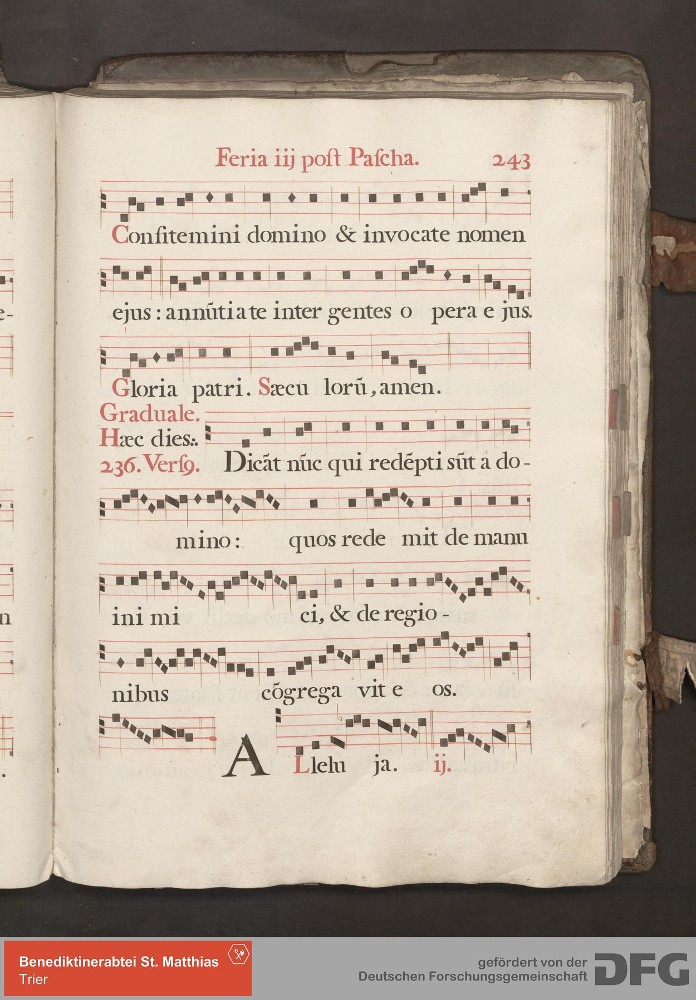 Feria iij poſt Paſcha. 243
Confitemini domino & invocate nomen
e-
ejus : annūtiate inter gentes o pera e jus.
Gloria patri. Sæcu lorū, amen.
Graduale.
Hæc dies:.
236. Verſ9. Dicāt nūc qui redēpti sūt a do-
mino : quos rede mit de manu
n
ini mi ci, & de regio -
nibus cōgrega vit e os.
A Llelu ja. ij.
.
Benediktinerabtei St. Matthias
Trier
gefördert von der
Deutschen Forschungsgemeinschaft
DFG